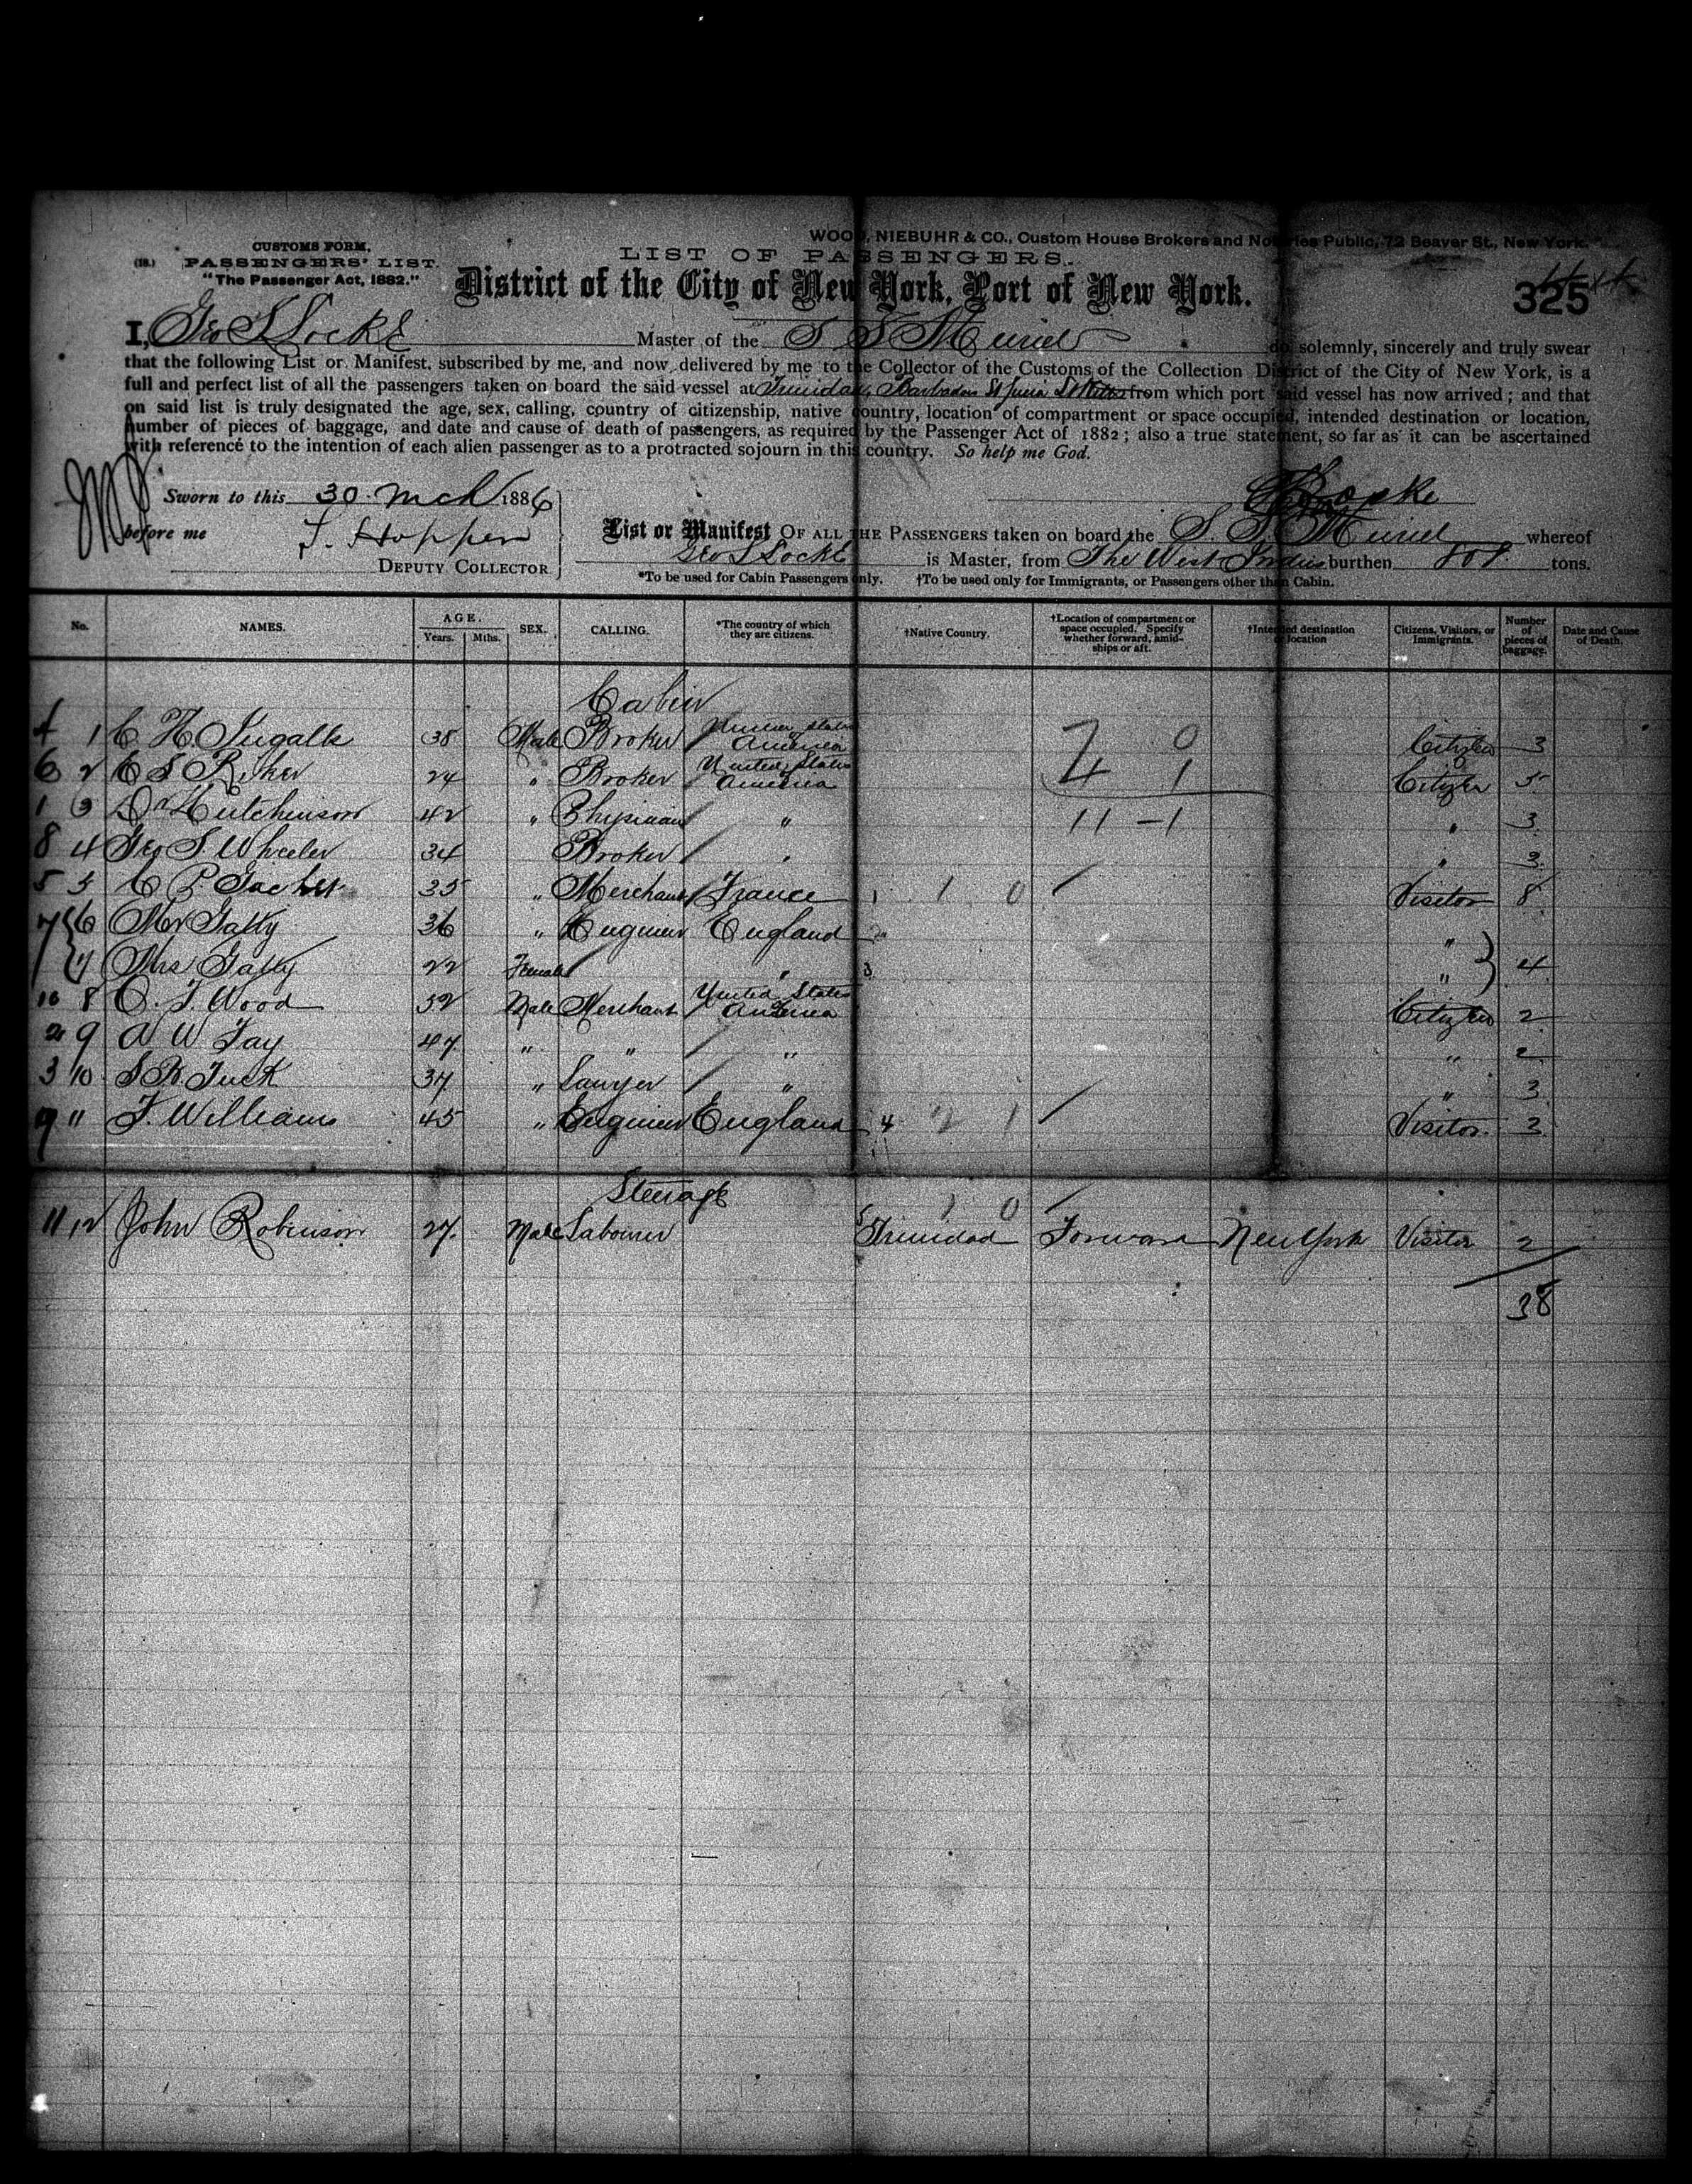 WOOD, NIEBUHR & CO., Custom House Brokers and Notaries Public, 72 Beaver St., New York.
CUSTOMS FORM.
LIST OF PASSENGERS.
(18.) PASSENGERS' LIST.
"The Passenger Act, 1882."
District of the City of New York, Port of New York.
325
I, Geo S Locke Master of the S S Muriel do solemnly, sincerely and truly swear
that the following List or Manifest, subscribed by me, and now delivered by me to the Collector of the Customs of the Collection District of the City of New York, is a
full and perfect list of all the passengers taken on board the said vessel at Trinidad, Barbados St Lucia St Kitts from which port said vessel has now arrived; and that
on said list is truly designated the age, sex, calling, country of citizenship, native country, location of compartment or space occupied, intended destination or location,
number of pieces of baggage, and date and cause of death of passengers, as required by the Passenger Act of 1882; also a true statement, so far as it can be ascertained
with reference to the intention of each alien passenger as to a protracted sojourn in this country. So help me God.
Sworn to this 30 Mch 1886
Locke
before me F. Hopper
List or Manifest OF ALL THE PASSENGERS taken on board the S. S. Muriel whereof
Geo S Locke is Master, from The West Indies burthen 808 tons.
DEPUTY COLLECTOR
*To be used for Cabin Passengers only. †To be used only for Immigrants, or Passengers other than Cabin.
No. NAMES. AGE. Years. Mths. SEX. CALLING. *The country of which they are citizens. †Native Country. †Location of compartment or space occupied. Specify whether forward, amidships or aft. †Intended destination or location Citizens, Visitors, or Immigrants. Number of pieces of baggage. Date and Cause of Death.
Cabin
4 1 C H. Ingalls 38 Male Broker United States America 7 0 Citizen 3
6 2 E S Riker 24 " Broker United States America 4 1 Citizen 5
1 3 Dr Hutchinson 42 " Physician " 11 - 1 " 3
8 4 Geo S. Wheeler 34 Broker " " 3
5 5 C P. 35 " Merchant France 1 1 0 Visitor 8
7 6 Mr Gatty 36 " Engineer England 2 "
7 Mrs Gatty 22 Female " 3 " 4
10 8 C. T. Wood 52 Male Merchant United States America Citizen 2
2 9 A W Fay 47 " " " " 2
3 10 S B. Tuck 37 " Lawyer " " 3
9 11 F. Williams 45 " Engineer England 4 2 1 Visitor 3
Steerage
1 0
11 12 John Robinson 27 Male Labourer 5 Trinidad Forward New York Visitor 2
38